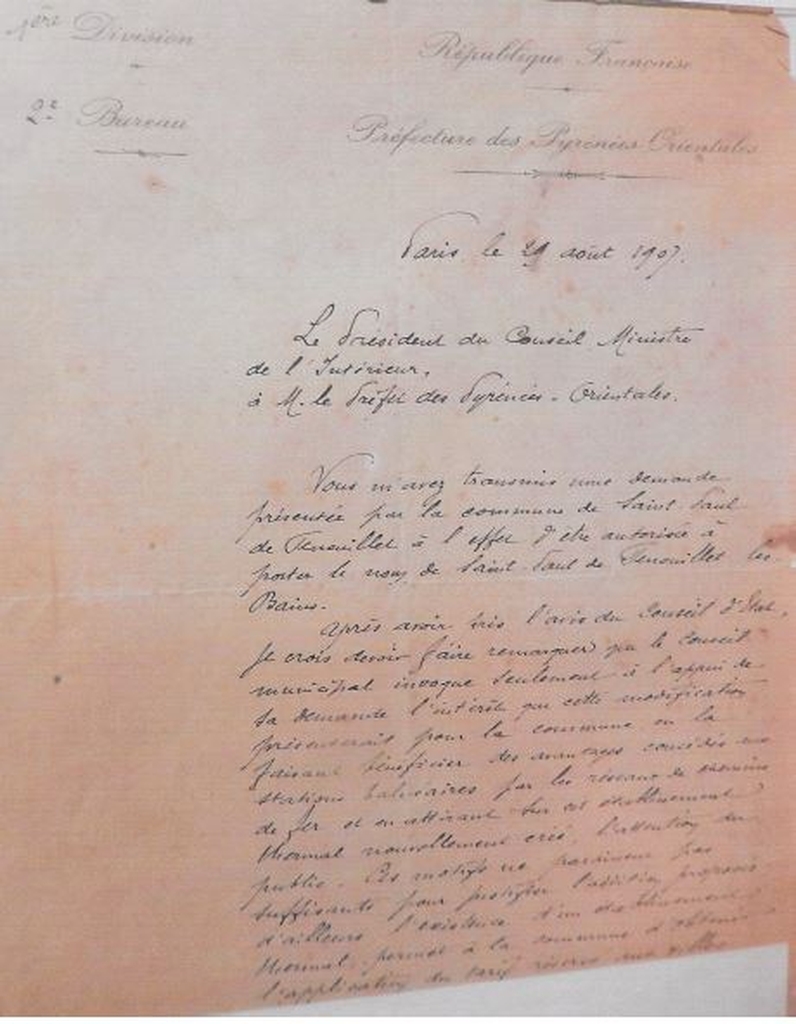 1ère Division
République Française
2e Bureau
Préfecture des Pyrénées Orientales
Paris le 29 août 1907.
Le Président du Conseil Ministre
de l'Intérieur,
à M. le Préfet des Pyrénées-Orientales.
Vous m'avez transmis une demande
présentée par la commune de Saint-Paul
de Fenouillet à l'effet d'être autorisée à
porter le nom de Saint-Paul de Fenouillet les
Bains.
Après avoir pris l'avis du Conseil d'Etat,
je crois devoir faire remarquer que le conseil
municipal invoque seulement à l'appui de
sa demande l'intérêt que cette modification
présenterait pour la commune en la
faisant bénéficier des avantages concédés aux
stations balnéaires par les réseaux de chemins
de fer et en attirant sur cet établissement
thermal nouvellement créé, l'attention du
public. Ces motifs ne paraissent pas
suffisants pour justifier l'addition proposée
d'ailleurs l'existence d'un établissement
thermal, permet à la commune d'obtenir
l'application du tarif réservé aux villes